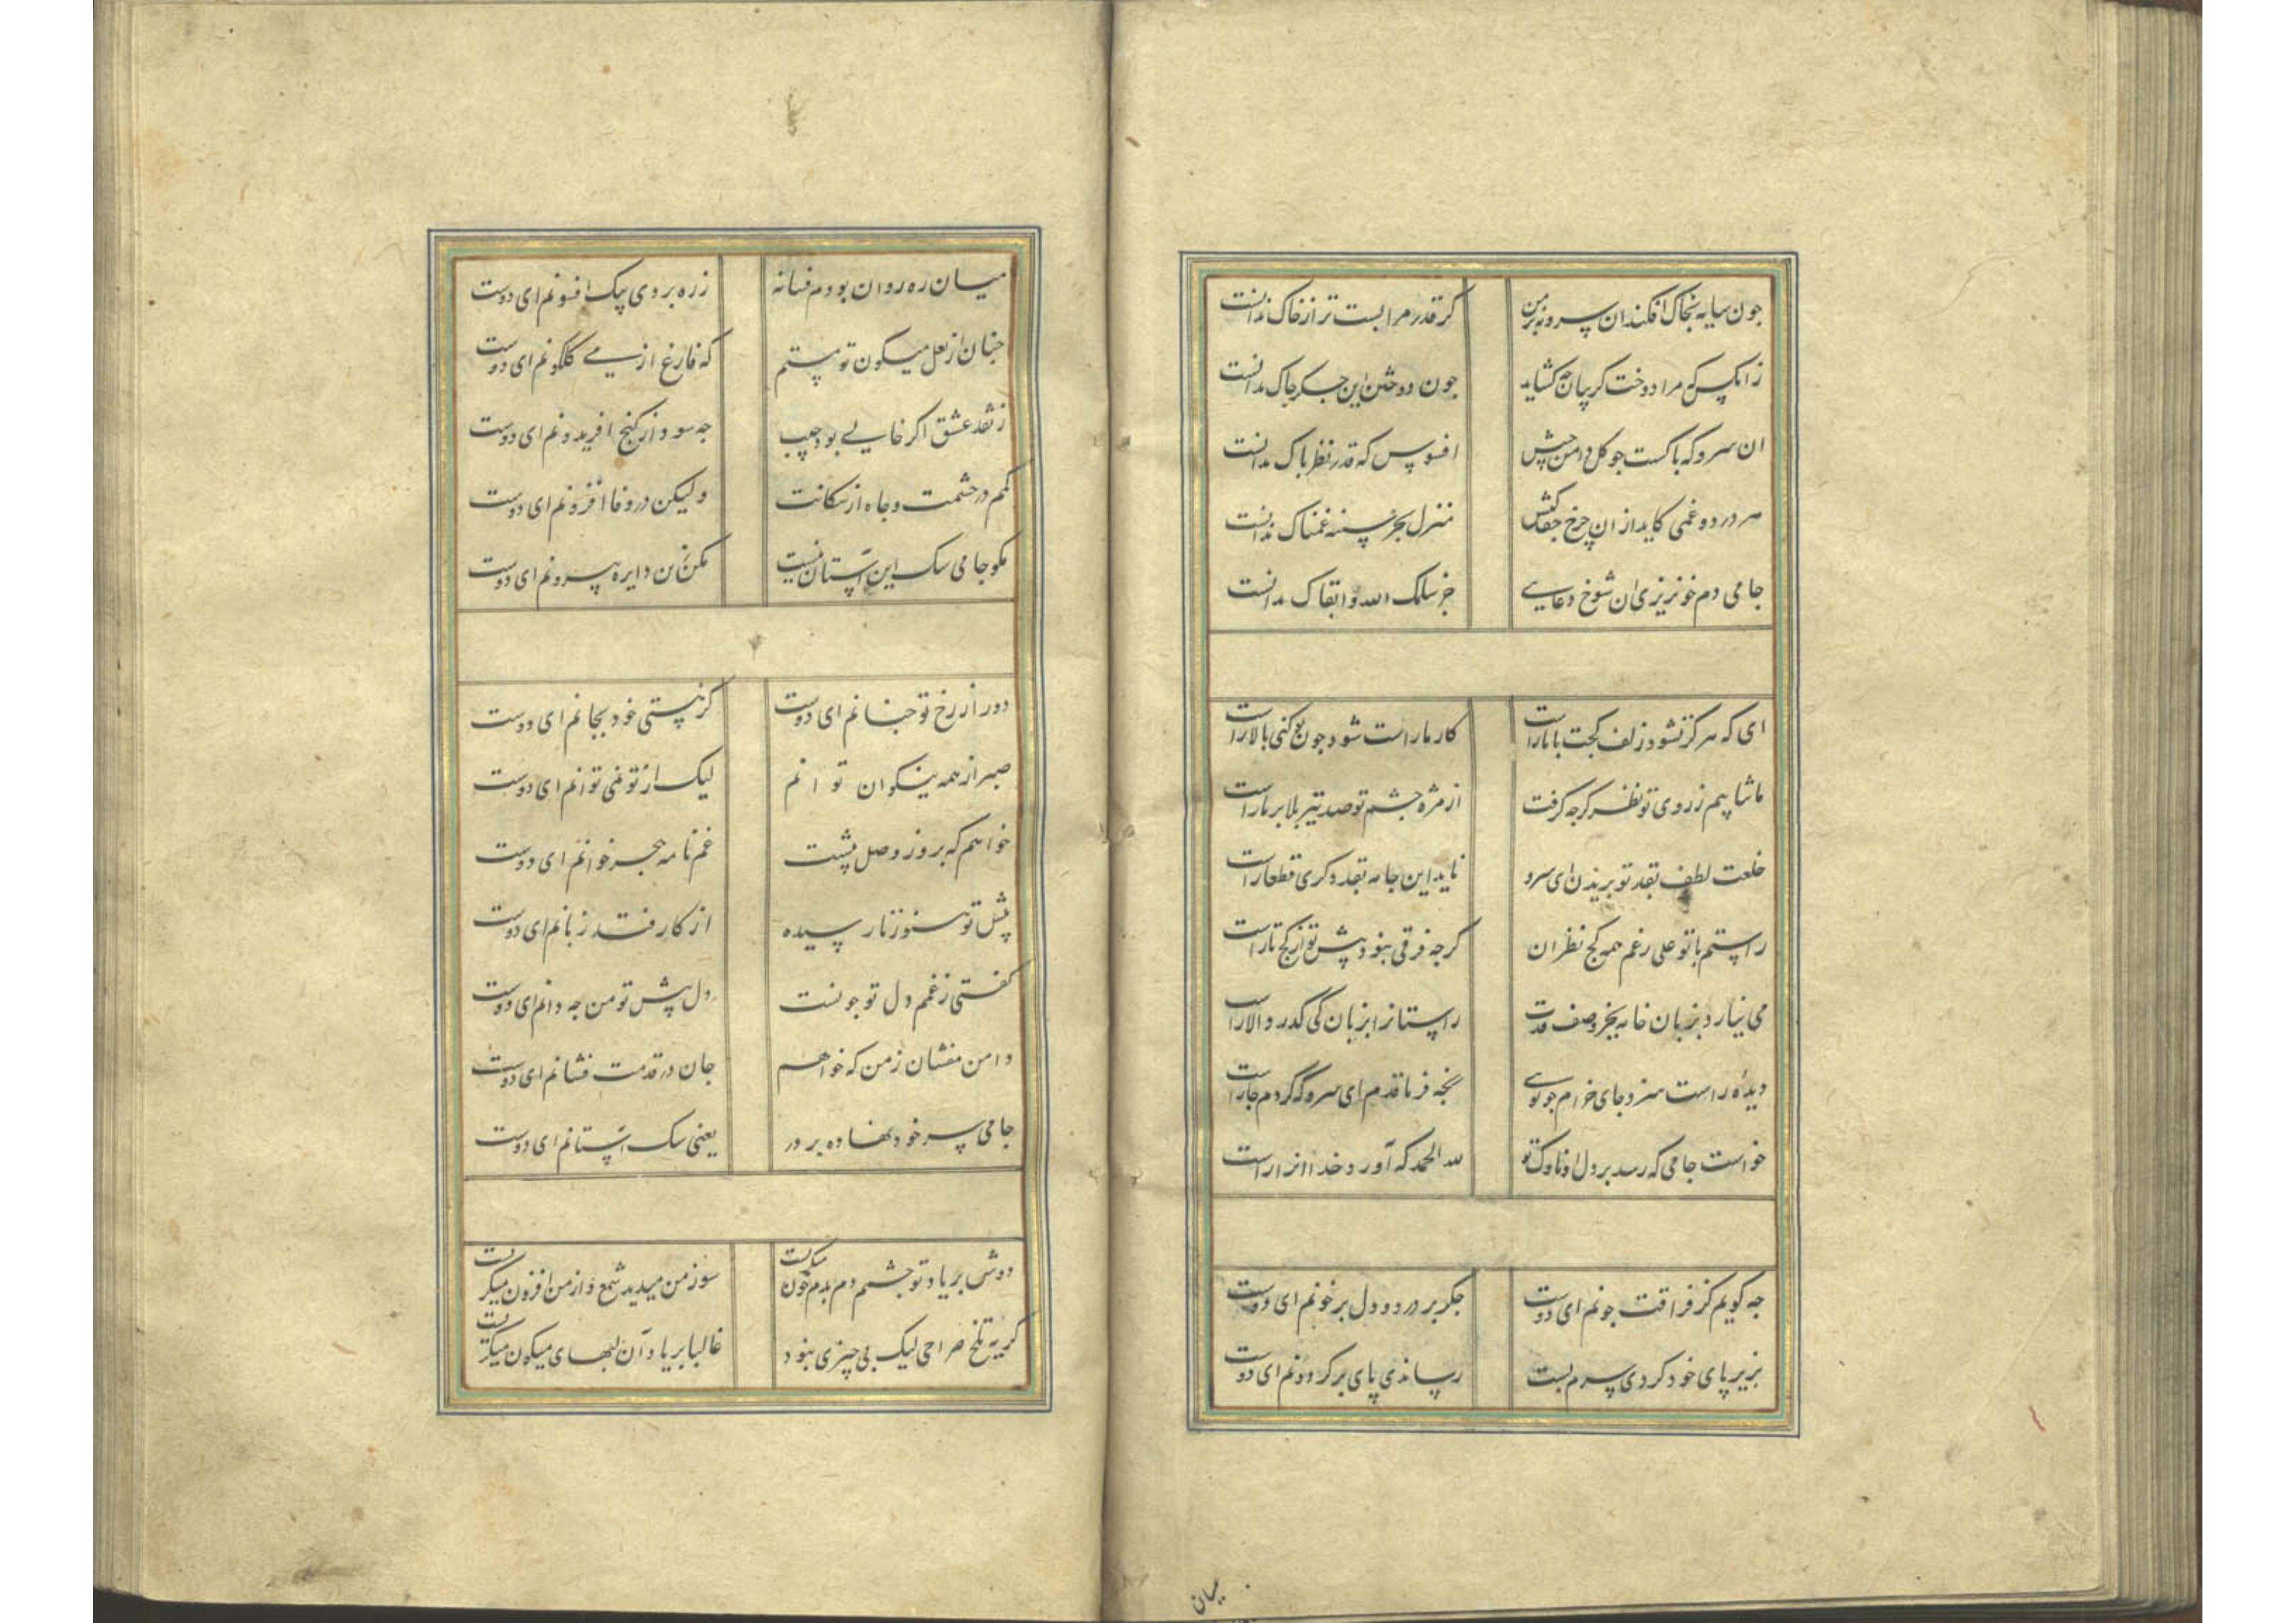 جون سایه بخاک افکند ان سرو نه بر من
کر قدر مرا بست تر از خاک ندانست
زانکس که مرا دوخت کریبان جه کشاید
جون دوختن این جکر جاک ندانست
ان سرو که باکست جو کل دامن جیبش
افسوس که قدر نظر باک ندانست
هر درد و غمی کاید از ان چرخ جفاکش
منزل بجز سینه غمناک ندانست
جامی دم خونریزی ان شوخ دعایی
جز سلمک الله و ابقاک ندانست
ای که هرکز نشود زلف کجت با ما راست
کار ما راست شود جون تو کنی بالا راست
ما نتابیم ز روی تو نظر کرجه کرفت
از مژه جشم تو صد تیر بلا بر ما راست
خلعت لطف بقد تو بریدند ای سرو
ناید این جامه بقد دکری قطعا راست
راستم با تو علی رغم همه کج نظران
کرجه فرقی نبود پیش تو از کج تا راست
می نیارد بزبان خامه بجز وصف قدت
راستانرا بزبان کی گذرد والا راست
دیده راست سزد جای خرام جو تویی
رنجه فرما قدم ای سرو که کردم جا راست
خواست جامی که رسد بر دل او ناوک تو
لله الحمد که آورد خدا انرا راست
جه کویم کز فراقت جونم ای دوست
جکر بر درد و دل بر خونم ای دوست
بزیر پای خود کردی سرم بست
رساندی پای بر کردونم ای دوست
میان
میان ره روان بودم فسانه
ز ره بردی بیک افسونم ای دوست
جنان از لعل میکون تو مستم
که فارغ از می کلکونم ای دوست
ز نقد عشق اکر خالی بود جیب
جه سود از کنج افریدونم ای دوست
کمم در حشمت و جاه از سکانت
ولیکن در وفا افزونم ای دوست
مکو جامی سک این آستان نیست
مکن زین دایره بیرونم ای دوست
دور از رخ تو جنانم ای دوست
کز نیستی خود بجانم ای دوست
صبر از همه نیکوان توانم
لیک از تو نمی توانم ای دوست
خواهم که بروز وصل پیشت
غم نامه هجر خوانم ای دوست
پیش تو هنوز نارسیده
از کار فتد زبانم ای دوست
کفتی ز غمم دل تو جونست
دل پیش تو من جه دانم ای دوست
دامن مفشان ز من که خواهم
جان در قدمت فشانم ای دوست
جامی سر خود نهاده بر در
یعنی سک آستانم ای دوست
دوش بر یاد تو جشمم دم بدم خون میکریست
سوز من میدید شمع و از من افزون میکریست
کریه تلخ صراحی لیک بی چیزی نبود
غالبا بر یاد آن لبهای میکون میکریست